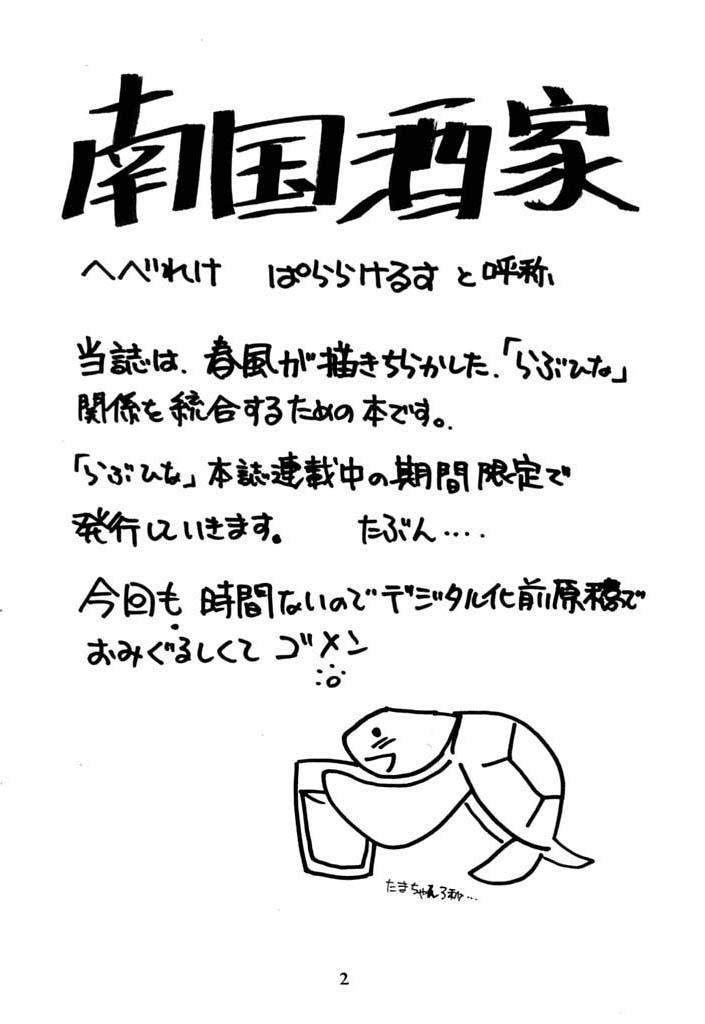 南国酒家
へべれけ ぱららけるす と呼称、
当誌は、春風が描きちらかした、「らぶひな」
関係を統合するための本です。
「らぶひな」本誌連載中の期間限定で
発行していきます。 たぶん‥‥
今回も 時間ないのでデジタル化前原稿で
おみぐるしくて ゴメン
たまちゃん3秒…
2